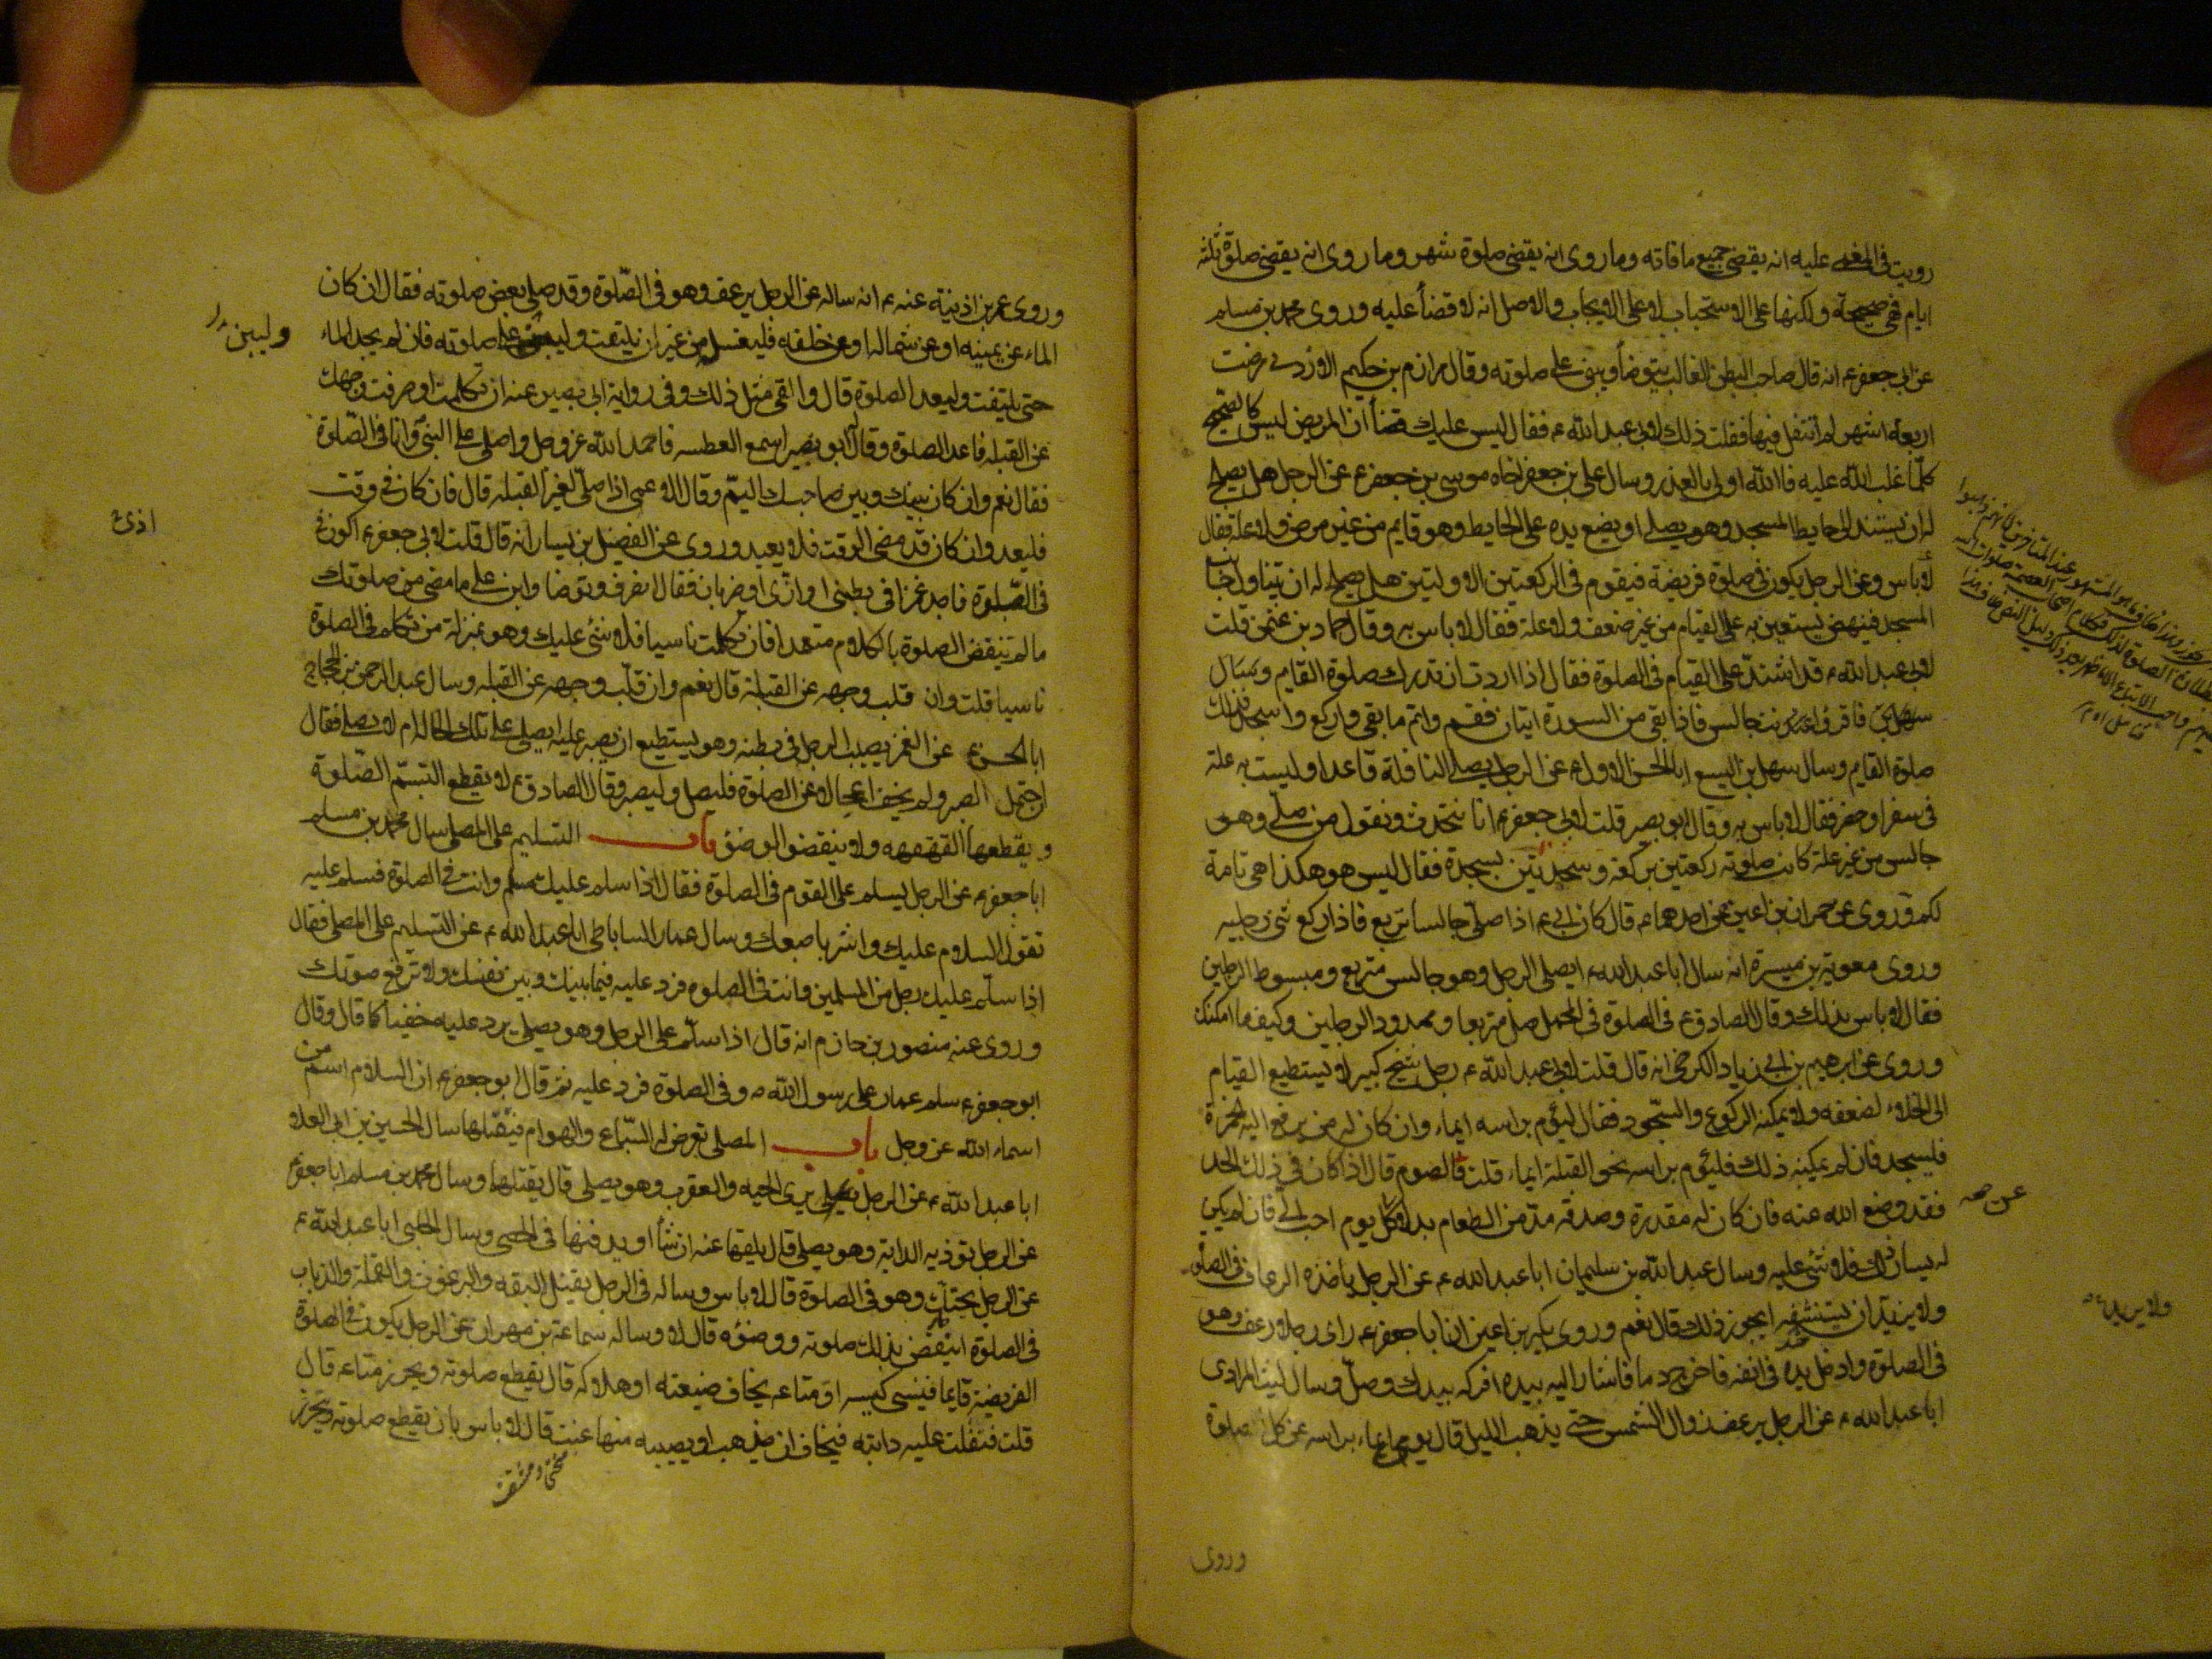 رويت في المغمى عليه انه يقضى جميع ما فاته وما روى انه يقضى صلوة شهر وما روى انه يقضى صلوة ثلثة
ايام فهى صحيحة ولكنها على الاستحباب لا على الايجاب والاصل انه لا قضأ عليه وروى محمد بن مسلم
عن ابى جعفر ع انه قال صاحب البطن الغالب يتوضأ ويبنى على صلوته وقال مرازم بن حكيم الازدى مرضت
اربعة اشهر لم اتنفل فيها فقلت ذلك لابى عبد الله ع فقال ليس عليك قضأ ان المريض ليس كالصحيح
كلما غلب الله عليه فالله اولى بالعذر وسال على بن جعفر اخاه موسى بن جعفر ع عن الرجل هل يصلح
له ان يستند الى حايط المسجد وهو يصلى او يضع يده على الحايط وهو قايم من غير مرض ولا علة فقال
لا باس وعن الرجل يكون فى صلوة فريضة فيقوم فى الركعتين الاولتين هل يصلح له ان يتناول جانب
المسجد فينهض يستعين به على القيام من غير ضعف ولا علة فقال لا باس به وقال حماد بن عثمن قلت
لابى عبد الله ع قد اشتد على القيام فى الصلوة فقال اذا اردت ان تدرك صلوة القايم
فاقرؤا وانت جالس فاذا بقى من السورة ايتان فقم واتم ما بقى واركع واسجد فذلك
صلوة القايم وسال سهل بن اليسع ابا الحسن الاول ع عن الرجل يصلى النافلة قاعدا وليست به علة
فى سفر او حضر فقال لا باس به وقال ابو بصير قلت لابى جعفر ع انا نتحدث ونقول من صلى وهو
جالس من غير علة كانت صلوته ركعتين بركعة وسجدتين بسجدة فقال ليس هو هكذا هى تامة
لكم وروى عن حمران بن اعين عن احدهما ع قال كان ابى ع اذا صلى جالسا تربع فاذا ركع ثنى رجليه
وروى معوية بن ميسرة انه سال ابا عبد الله ع ايصلى الرجل وهو جالس متربع ومبسوط الرجلين
فقال لا باس بذلك وقال الصادق ع فى الصلوة فى المحمل صل متربعا وممدود الرجلين وكيفما امكنك
وروى عن ابرهيم بن ابى زياد الكرخى انه قال قلت لابى عبد الله ع رجل شيخ كبير لا يستطيع القيام
الى الخلاء لضعفه ولا يمكنه الركوع والسجود فقال ليؤم براسه ايماء وان كان له من يرفع اليه الخمرة
فليسجد فان لم يمكنه ذلك فليؤم براسه نحو القبلة ايماء قلت فالصوم قال اذا كان فى ذلك الحد
فقد وضع الله عنه فان كان له مقدرة وصدقه مد من الطعام بدل كل يوم احب الى فان لم يكن
له يسار ذلك فلا شئ عليه وسال عبد الله بن سليمان ابا عبد الله ع عن الرجل ياخذه الرعاف فى الصلوة
ولا يزيد ان يستنشفه ايجوز ذلك قال نعم وروى بكير بن اعين ان ابا جعفر ع راى رجلا رعف وهو
فى الصلوة وادخل يده فى انفه فاخرج دما فاشار اليه بيده افركه بيدك وصل وسال ليث المرادى
ابا عبد الله ع عن الرجل يرعف زوال الشمس حتى يذهب الليل قال يومى ايماء براسه عن كل صلوة
وروى
ولا يريد
وروى عمر بن اذينة عنه ع انه ساله عن الرجل يرعف وهو فى الصلوة وقد صلى بعض صلوته فقال ان كان
الماء عن يمينه او عن شماله او عن خلفه فليغسله من غير ان يلتفت وليبن على صلوته فان لم يجد الماء
حتى يلتفت وليعد الصلوة قال والقى مثل ذلك وفى رواية ابى بصير عنه ان تكلمت او صرفت وجهك
عن القبلة فاعد الصلوة وقال له ابو بصير اسمع العطسة فاحمد الله عز وجل واصلى على النبى وانا فى الصلوة
فقال نعم وان كان بينك وبين صاحبك اليم وقال الاعمى اذا صلى لغير القبلة قال فان كان فى وقت
فليعد وان كان قد مضى الوقت فلا يعيد وروى عن الفضيل بن يسار انه قال قلت لابى جعفر ع اكون
فى الصلوة فاجد غمزا فى بطنى او اذى او ضربانا فقال انصرف وتوضا وابن على ما مضى من صلوتك
ما لم تنقض الصلوة بالكلام متعمدا فان تكلمت ناسيا فلا شئ عليك وهو بمنزلة من تكلم فى الصلوة
ناسيا قلت وان قلب وجهه عن القبلة قال نعم وان قلب وجهه عن القبلة وسال عبد الرحمن بن الحجاج
ابا الحسن ع عن الغمز يصيب الرجل فى بطنه وهو يستطيع ان يصبر عليه ايصلى على تلك الحال ام لا يصلى فقال
ان احتمل الصبر ولم يخف اعجالا عن الصلوة فليصل وليصبر وقال الصادق ع لا يقطع التبسم الصلوة
ويقطعها القهقهه ولا ينقض الوضؤ باب التسليم على المصلى سال محمد بن مسلم
ابا جعفر ع عن الرجل يسلم على القوم فى الصلوة فقال اذا سلم عليك مسلم وانت فى الصلوة فسلم عليه
تقول السلام عليك واشر باصبعك وسال عمار الساباطى ابا عبد الله ع عن التسليم على المصلى فقال
اذا سلم عليك رجل من المسلمين وانت فى الصلوه فرد عليه فيما بينك وبين نفسك ولا ترفع صوتك
وروى عنه منصور بن حازم انه قال اذا سلم على الرجل وهو يصلى يرد عليه خفيا كما قال وقال
ابو جعفر ع سلم عمار على رسول الله ص وفى الصلوة فرد عليه ثم قال ابو جعفر ع ان السلام اسم من
اسماء الله عز وجل باب المصلى تعرض له السباع والهوام فيقتلها سال الحسين بن ابى العلا
ابا عبد الله ع عن الرجل يرى الحيه والعقرب وهو يصلى قال يقتلها وسال محمد بن مسلم ابا جعفر ع
عن الرجل تؤذيه الدابة وهو يصلى قال يلقيها عنه ان شأ او يدفنها فى الحصى وسال الحلبى ابا عبد الله ع
عن الرجل يحتك وهو فى الصلوة قال لا باس وساله فى الرجل يقتل البقه والبرغوث والقملة والذباب
فى الصلوة اينقض ذلك صلوته ووضؤه قال لا وساله سماعة بن مهران عن الرجل يكون فى الصلوة
الفريضة قايما فينسى كيسه او متاعه يخاف ضيعته او هلاكه قال يقطع صلوته ويحرز متاعه قال
قلت فتفلت عليه دابته فيخاف ان يذهب او يصيبه منها عنت قال لا باس بان يقطع صلوته ويتحرز
وليبن